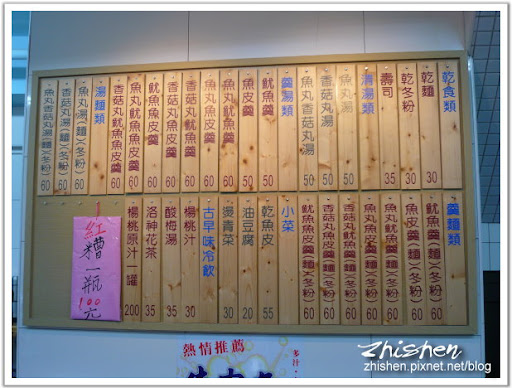 乾食類
乾麵 30
乾冬粉 30
壽司 35
清湯類
魚丸湯 50
香菇丸湯 50
魚丸香菇丸湯 50
羹湯類
魷魚羹 50
魚皮羹 50
魚丸魷魚羹 60
魚丸魚皮羹 60
香菇丸魷魚羹 60
香菇丸魚皮羹 60
魷魚魚皮羹 60
魚丸魷魚魚皮羹 60
香菇丸魷魚魚皮羹 60
湯麵類
魚丸湯(麵)(冬粉) 60
香菇丸湯(麵)(冬粉) 60
魚丸香菇丸湯(麵)(冬粉) 60
羹麵類
魷魚羹(麵)(冬粉) 60
魚皮羹(麵)(冬粉) 60
魚丸魷魚羹(麵)(冬粉) 60
魚丸魚皮羹(麵)(冬粉) 60
香菇丸魷魚羹(麵)(冬粉) 60
香菇丸魚皮羹(麵)(冬粉) 60
魷魚魚皮羹(麵)(冬粉) 60
小菜
乾魚皮 55
油豆腐 20
燙青菜 30
古早味冷飲
楊桃汁 30
酸梅湯 35
洛神花茶 35
楊桃原汁一罐 200
紅糟一瓶
100元
熱情推薦
多汁
Zhishen
zhishen.pixnet.net/blog